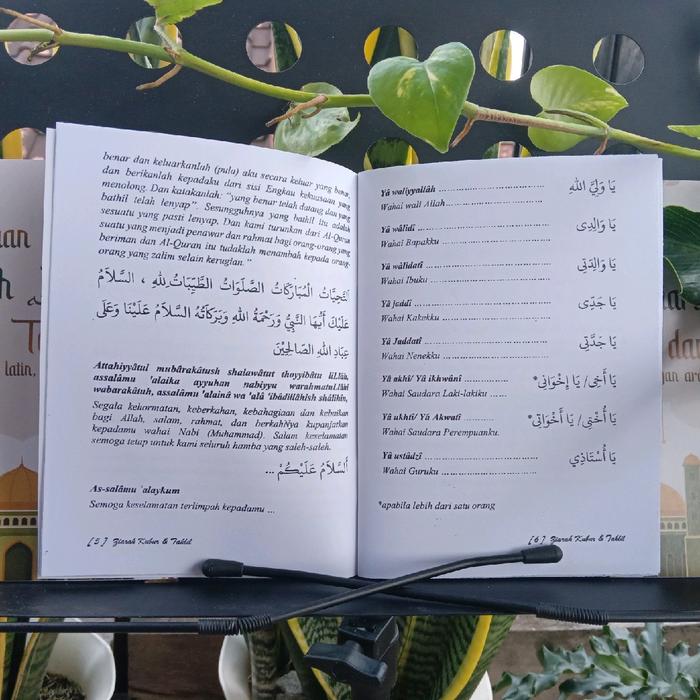 benar dan keluarkanlah (pula) aku secara keluar yang benar
dan berikanlah kepadaku dari sisi Engkau kekuasaan yang
menolong. Dan katakanlah: "yang benar telah datang dan yang
bathil telah lenyap". Sesungguhnya yang bathil itu adalah
sesuatu yang pasti lenyap. Dan kami turunkan dari Al-Quran
suatu yang menjadi penawar dan rahmat bagi orang-orang yang
beriman dan Al-Quran itu tudaklah menambah kepada orang-
orang yang zalim selain kerugian."
اَلتَّحِيَّاتُ الْمُبَارَكَاتُ الصَّلَوَاتُ الطَّيِّبَاتُ لِلّٰهِ ، السَّلَامُ
عَلَيْكَ أَيُّهَا النَّبِيُّ وَرَحْمَةُ اللهِ وَبَرَكَاتُهُ السَّلَامُ عَلَيْنَا وَعَلَى
عِبَادِ اللهِ الصَّالِحِيْنَ
Attahiyyâtul mubârakâtush shalawâtut thoyyibâtu lil.lâh,
assalâmu 'alaika ayyuhan nabiyyu warahmatul.lâhi
wabarakâtuh, assalâmu 'alainâ wa 'alâ 'ibâdillâhish shâlihîn,
Segala kehormatan, keberkahan, kebahagiaan dan kebaikan
bagi Allah, salam, rahmat, dan berkahNya kupanjatkan
kepadamu wahai Nabi (Muhammad). Salam keselamatan
semoga tetap untuk kami seluruh hamba yang saleh-saleh.
اَلسَّلَامُ عَلَيْكُمْ ...
As-salâmu 'alaykum
Semoga keselamatan terlimpah kepadamu ...
[ 5 ] Ziarah Kubur & Tahlil
Yâ waliyyallâh ........ يَا وَلِيَّ اللهِ
Wahai wali Allah........
Yâ wâlidî ........ يَا وَالِدِى
Wahai Bapakku ........
Yâ wâlidatî ........ يَا وَالِدَتِى
Wahai Ibuku ........
Yâ jaddî ........ يَا جَدِّى
Wahai Kakekku ........
Yâ Jaddatî ........ يَا جَدَّتِى
Wahai Nenekku ........
Yâ akhî/ Yâ ikhwânî ........ يَا أَخِى/ يَا إِخْوَانِى*
Wahai Saudara Laki-lakiku ......
Yâ ukhtî/ Yâ Akwatî ........ يَا أُخْتِى/ يَا أَخْوَاتِى*
Wahai Saudara Perempuanku.
Yâ ustâdzî ........ يَا أُسْتَاذِي
Wahai Guruku ........
*apabila lebih dari satu orang
[ 6 ] Ziarah Kubur & Tahlil
latin,